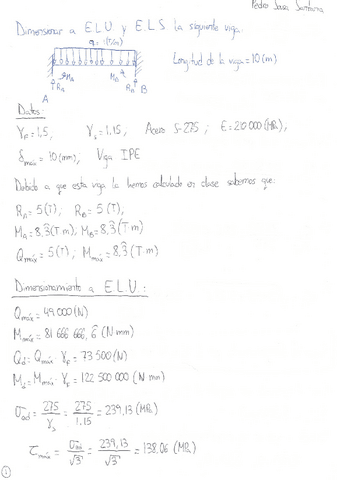 Pedro Jara Santana
Dimensionar a E L U y E L S la siguiente viga.
q = 1(T/m)
Longitud de la viga = 10 (m)
M_A M_B
R_A R_B B
A
Datos:
γ_F = 1,5, γ_s = 1.15, Acero S-275 ; E = 210 000 (MPa),
δ_max = 10 (mm), Viga IPE
Debido a que esta viga la hemos calculado en clase sabemos que:
R_A = 5 (T) ; R_B = 5 (T),
M_A = 8,3̂ (T m) ; M_B = 8,3̂ (T m)
Q_máx = 5 (T) ; M_máx = 8,3̂ (T m)
Dimensionamiento a E L U :
Q_máx = 49 000 (N)
M_máx = 81 666 666, 6̂ (N mm)
Q_d = Q_máx · γ_F = 73 500 (N)
M_d = M_máx · γ_F = 122 500 000 (N mm)
σ_ad = 275 / γ_s = 275 / 1.15 = 239,13 (MPa)
τ_máx = σ_ad / √3 = 239,13 / √3 = 138.06 (MPa)
1